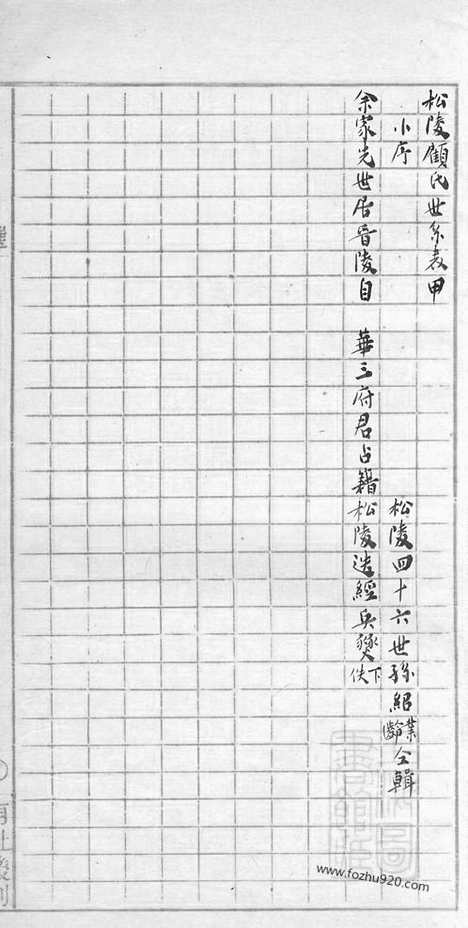 松陵顧氏世系表甲
小序
松陵四十六世孫紹業齡仝輯
余家先世居晉陵自 華三府君占籍松陵迭經兵燹下佚
www.fozhu920.com